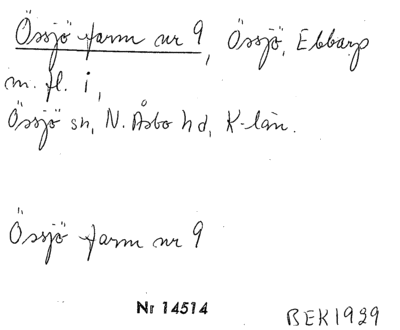 Össjö farm nr 9, Össjö, Ebbarp
m. fl. i,
Össjö sn, N. Åsbo hd, K-län.
Össjö farm nr 9
Nr 14514
BEK1929